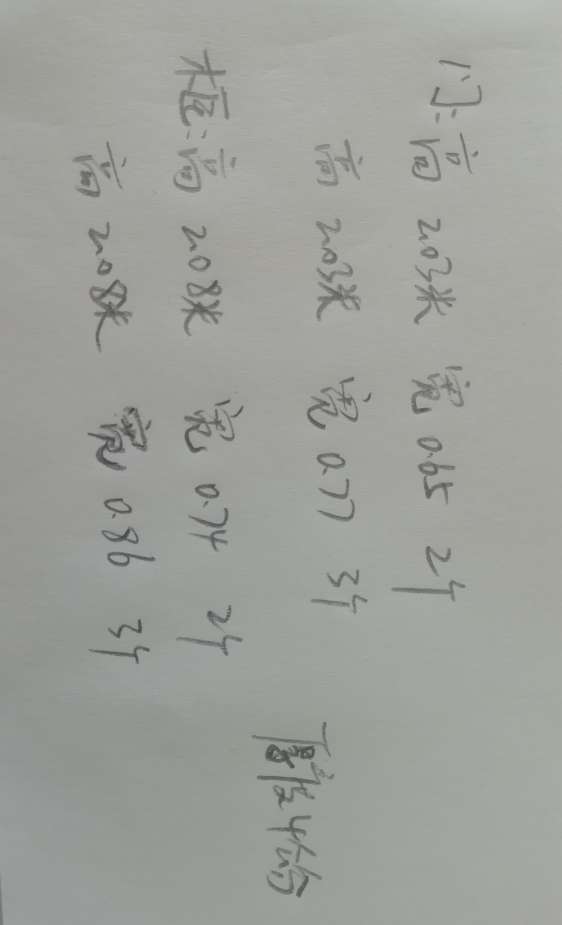 门:高 2.03米 宽 0.65 2个
高 2.03米 宽 0.77 3个
框:高 2.08米 宽 0.74 2个
高 2.08米 宽 0.86 3个
厚度4公分